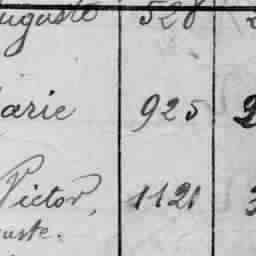 Auguste 528 2
Marie 925 2
Victor, 1121 3
Auguste.